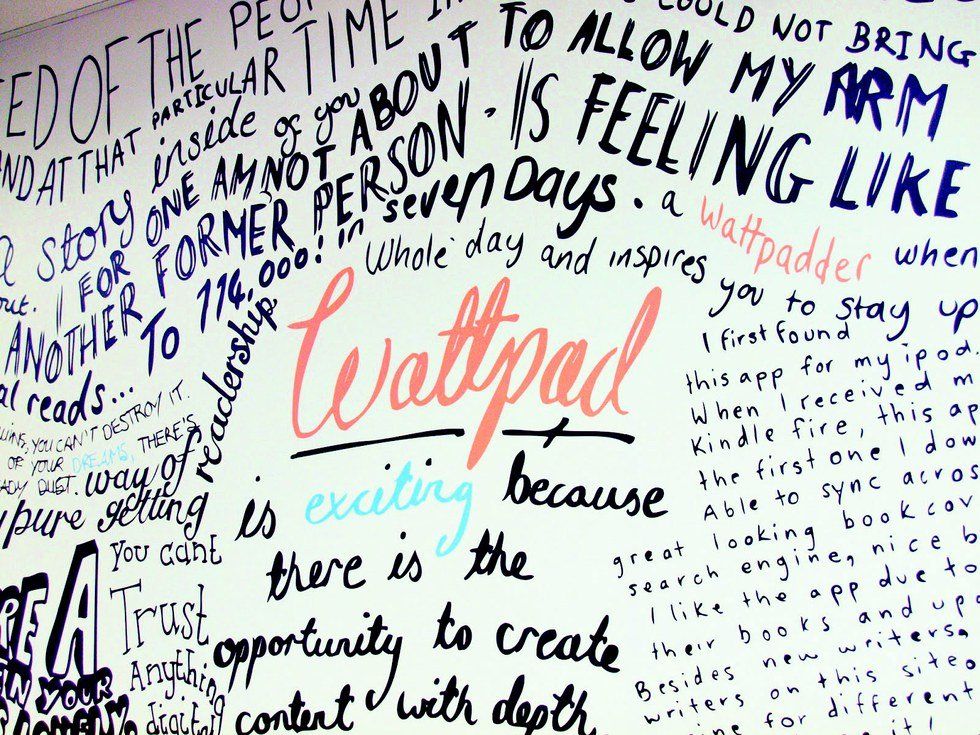 ED OF THE PEO
PARTICULAR TIME IN
AND AT THAT
COULD NOT BRING
TO ALLOW MY ARM
IS FEELING LIKE
story inside of you
ONE AM NOT ABOUT
out. I FOR FORMER PERSON.
ANOTHER TO 114,000! in seven Days. a wattpadder when
al reads...
Whole day and inspires
you to stay up
WINS, YOU CAN'T DESTROY IT.
OF YOUR DREAMS, THERE'S
ADY DUST.
way of readership
pure getting
You cant
Trust
Anything
digital
Wattpad
is exciting because
there is the
opportunity to create
content with depth,
I first found
this app for my ipod.
When I received m
Kindle fire, this ap
the first one I dow
Able to sync acros
great looking bookcov
search engine, nice b
I like the app due to
their books and upd
Besides new writers,
writers on this site
for different